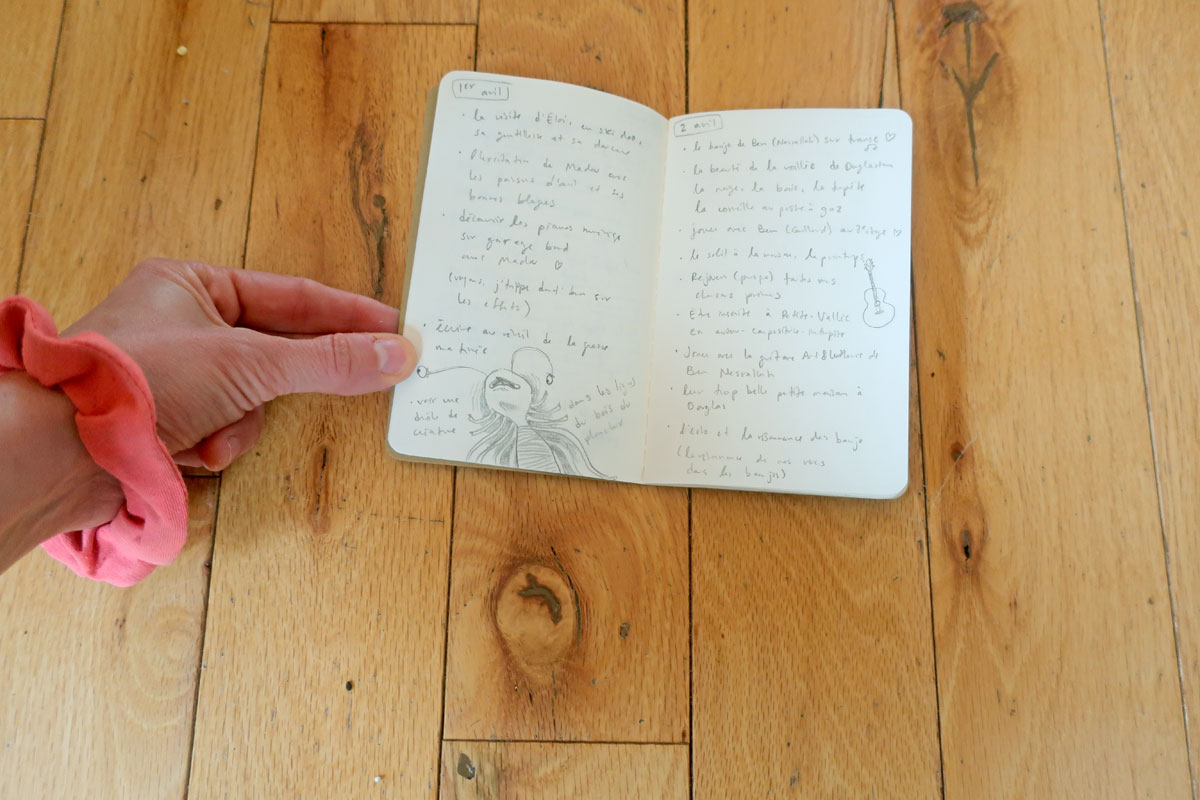 1er avril
· la visite d'Eloi, en ski doo,
sa gentillesse et sa douceur
· l'hésitation de Mador avec
les poissons d'avril et ses
bonnes blagues
· découvrir les pianos
sur garage band
avec Mador ♡
(voyons, j'trippe don' ben sur
les effets)
· Écrire au réveil de la grasse
matinée
· voir une
drôle de
créature
dans les lignes
du bois du
plancher
2 avril
· le banjo de Ben (Nesrallah) sur ♡
· la beauté de la vallée de Douglastown
la neige, le bois, la tempête
la corneille au poste à gaz
· jouer avec Ben (Gaillard) au 2e étage ♡
· le soleil à la maison, le printemps
· Rejouer toutes mes
chansons
· Être inscrite à Petite-Vallée
en auteur-compositrice-interprète
· Jouer avec la guitare de
Ben Nesrallah
· leur trop belle petite maison à
Douglas
· l'écho et la résonnance des banjo
(la résonnance de nos voix
dans les banjos)